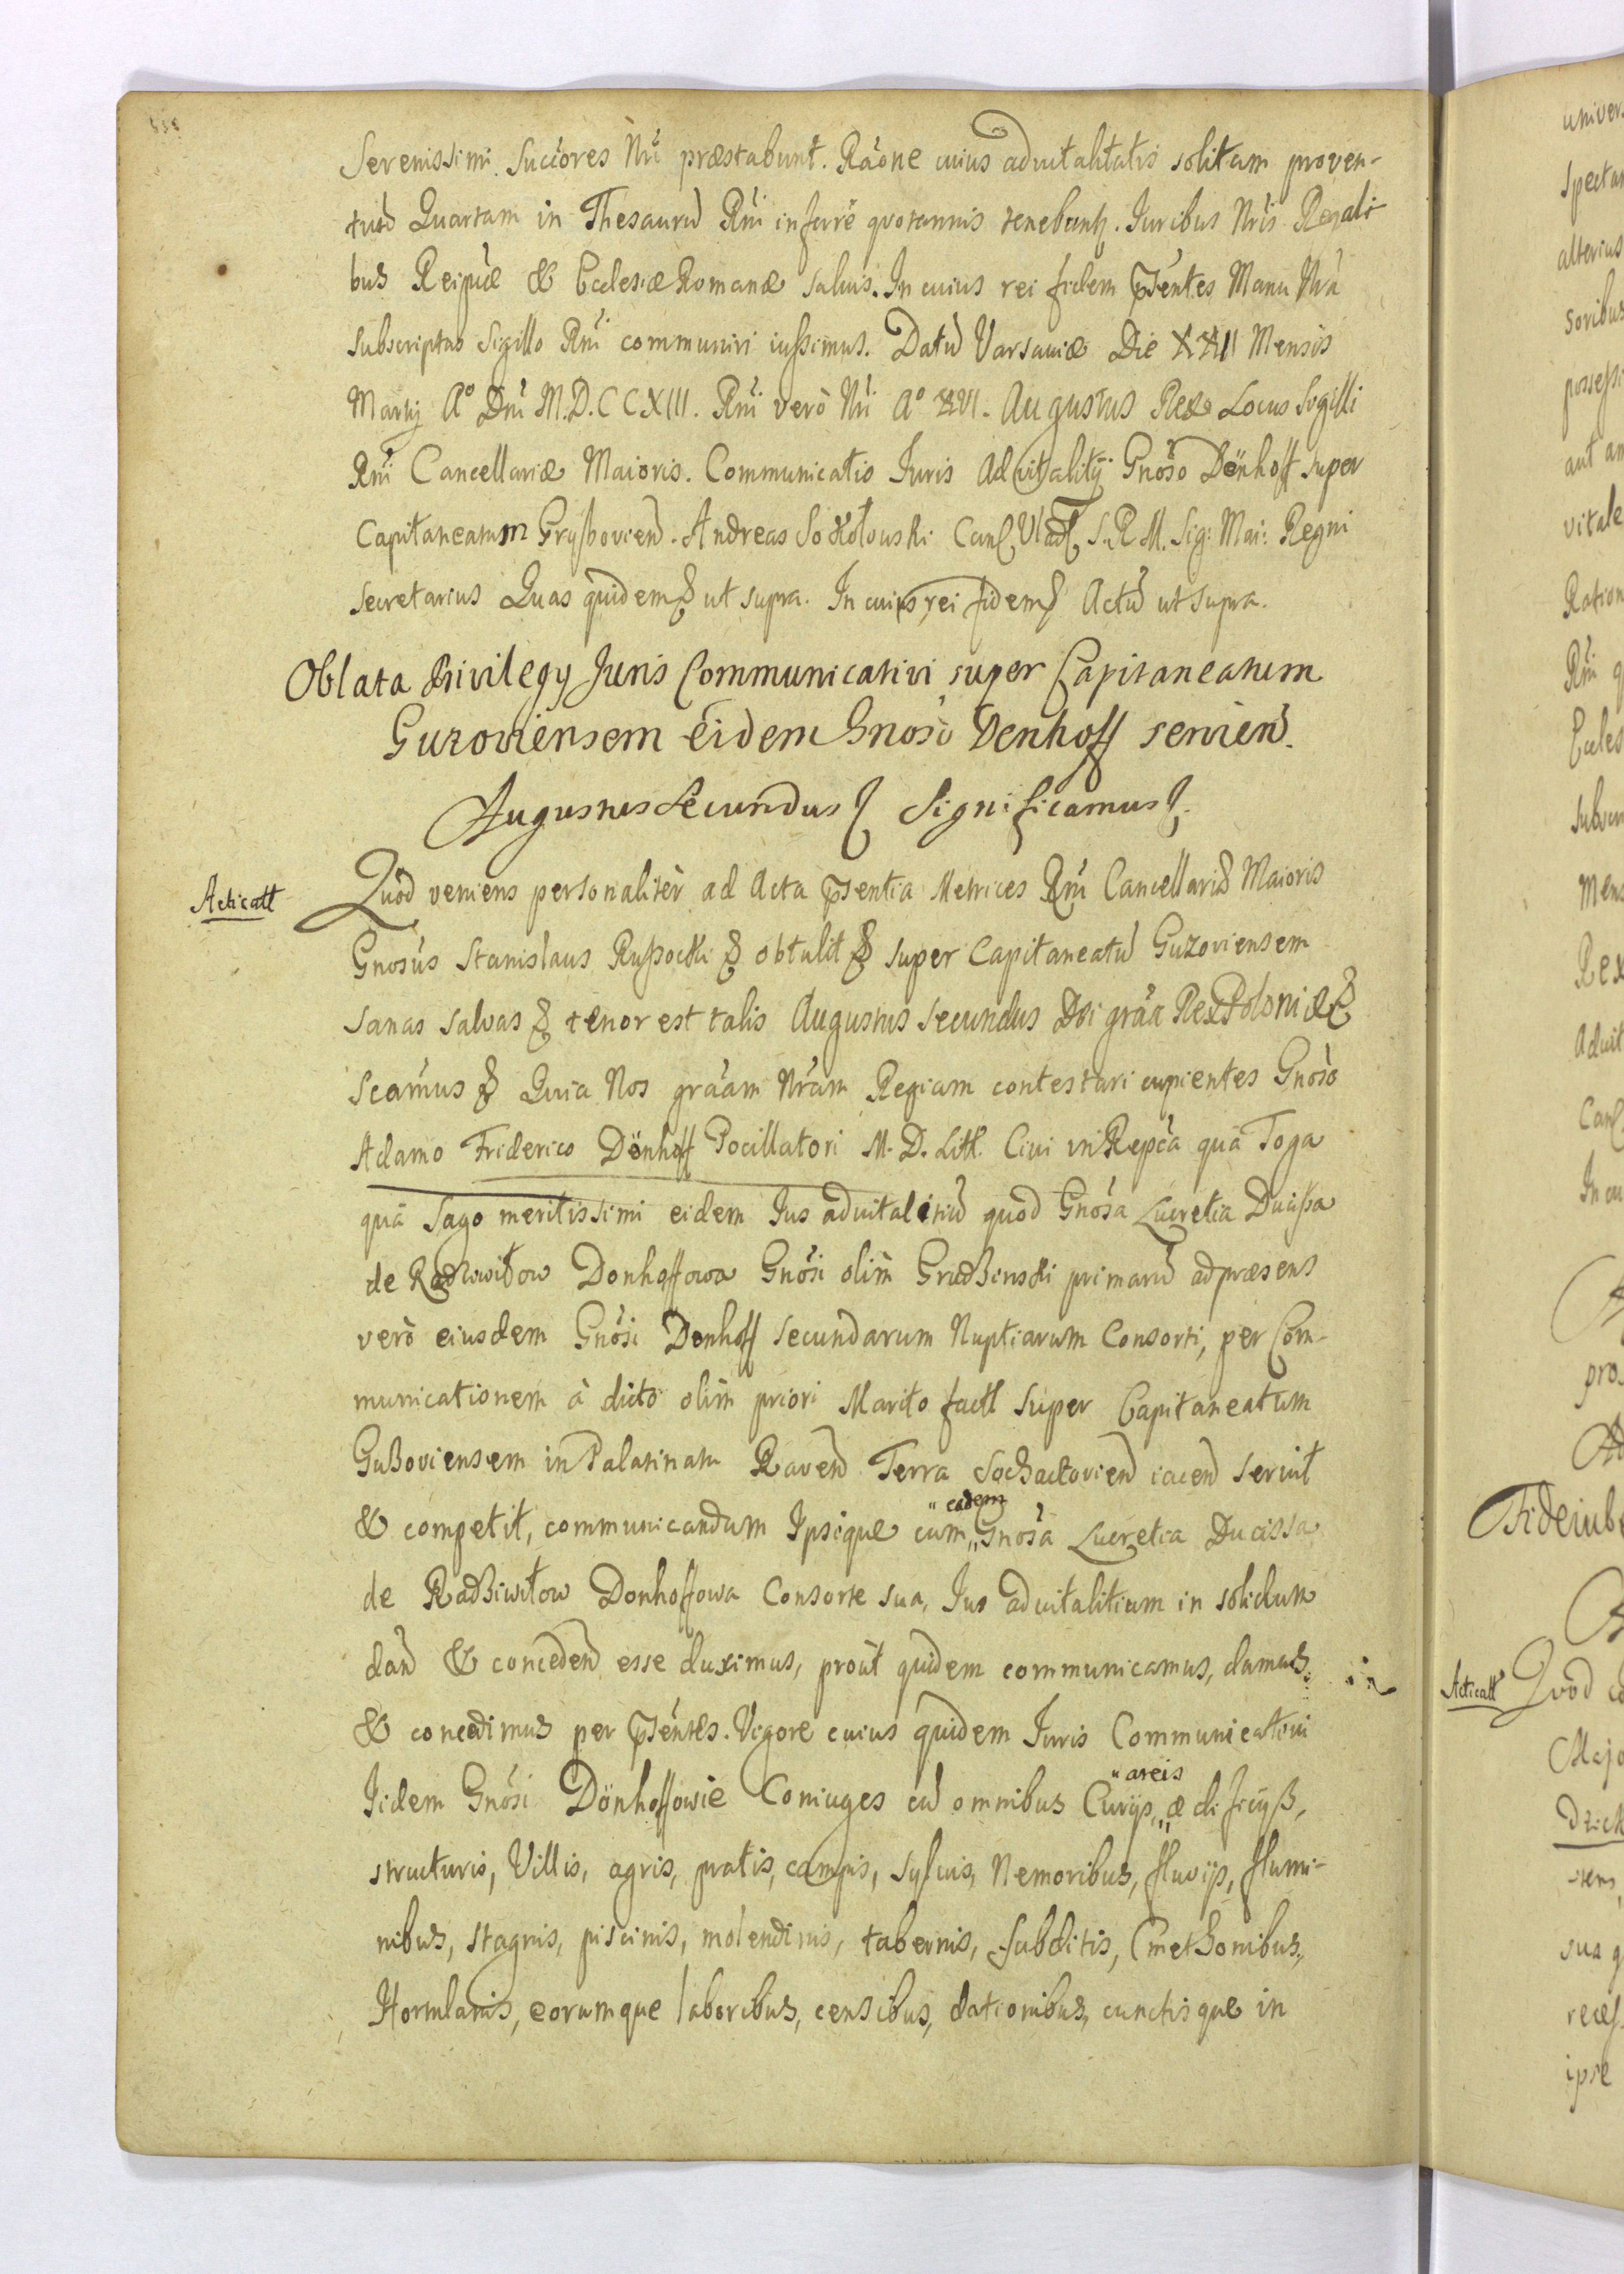 Serenissimi Succ̃ores Nr̃i præstabunt. Rãone cuius aduitalitatis solitam proven-
tuũ Quartam in Thesaurũ Rñi inferrè quotannis tenebuntꝫ. Iuribus Nrĩs Regali-
bus Reipũcæ & Ecclesiæ Romanæ saluis. In cuius rei fidem p̃sentes Manu Nrã
subscriptas Sigillo Rñi communiri iussimus. Datũ Varsauiæ Die XXII Mensis
Martij Aº Dñi M.D.CCXIII. Rñi verò Nr̃i Aº XVI. Augustus Rex. Locus Sigilli
Rñi Cancellariæ Maioris. Communicatio Iuris Aduitalitÿ Gnõso Dönhoff super
Capitaneatum Gryboviens̃. Andreas Sokołowski S.R.M. Sig: Mai: Regni
Secretarius Quas quidem & ut supra. In cuius rei fidem & Actũ ut supra.
Oblata Privilegÿ Juris Communicativi super Capitaneatum
Guzoviensem eidem Gnosõ Denhoff servien̄.
Augustus Secundus & Significamus &.
Acticatt
Quòd veniens personalitèr ad Acta p̃sentia Metrices Rñi Cancellariæ Maioris
Gnosũs Stanislaus Russocki & obtulit & super Capitaneatũ Guzoviensem
sanas salvas & tenor est talis Augustus Secundus Dei grãa Rex Poloniæ &
Scãmus & Quia Nos grãam Nrãm Regiam contestari cupientes Gnõso
Adamo Friderico Dönhoff Pocillatori M. D. Litt. Ciui in Repcã quà Toga
quà Sago meritissimi eidem Ius aduitalitiũ quod Gnõsa Lucretia Ducissa
de Radziwiłow Donhoffowa Gnõsi olim Grudzinski primarũ ad præsens
verò eiusdem Gnõsi Donhoff secundarum Nuptiarum Consorti, per Com-
municationem à dicto olim priori Marito factt super Capitaneatum
Guzoviensem in Palatinatu Raven̄ Terra Sochaczovien̄ iacen̄ servit
& competit, communicandum Ipsique cum „Gnõsa Lucretia Ducissa
„ eadem
de Radziwiłow Donhoffowa Consorte sua, Ius aduitalitium in solidum
dan̄ & conceden̄ esse duximus, proùt quidem communicamus, damus
& concedimus per p̃sentes. Vigore cuius quidem Iuris Communicativi
Iidem Gnõsi Dönhoffowie Coniuges cũ omnibus Curijs, „ ædificijs,
„ areis
structuris, Villis, agris, pratis, campis, sylvis, Nemoribus, fluvijs, flumi-
nibus, stagnis, piscinis, molendinis, tabernis, subditis, Cmethonibus,
Hortulanis, eorumque laboribus, censibus, dationibus, cunctisque in